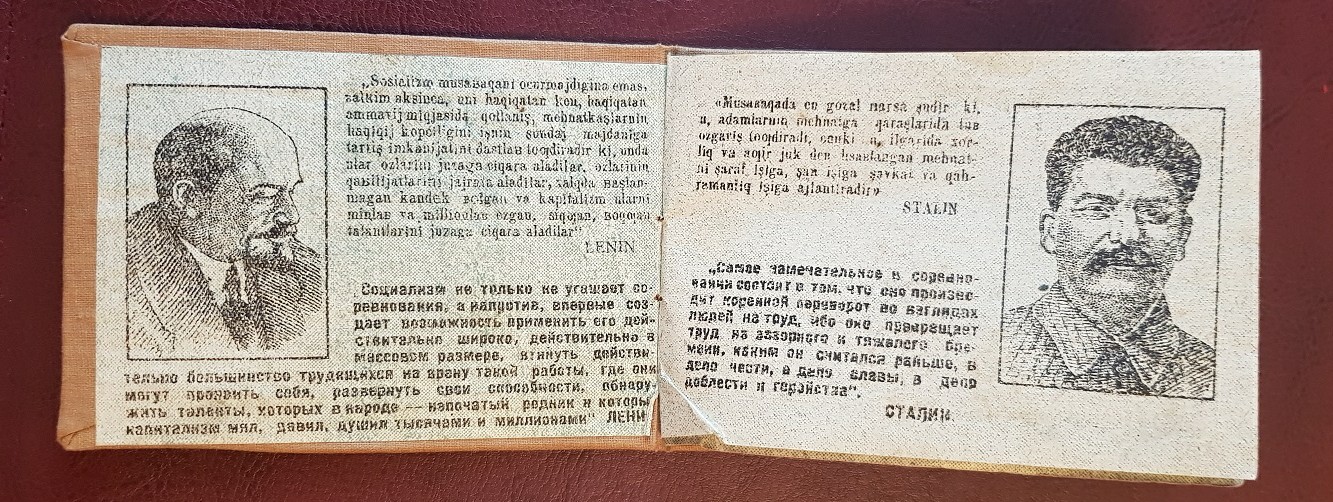 „Sosializm musaʙaqani ocurmajdigina emas,
ʙalkim aksinca, uni haqiqatan ken, haqiqatan
ammavij miqjasida qollaniş, mehnatkaşlarnin
haqiqij kopciligini işnin şundaj majdaniga
tartiş imkanijatini dastlaʙ tuqdiradir ki, unda
ular ozlarini juzaga ciqara aladilar, ozlarinin
qaʙilijatlarini jajrata aladilar, xalqda ʙaşlan-
magan kandek ʙolgan va kapitalizm ularni
minlaʙ va millionlaʙ ezgan, siqqan, ʙoqqan
talantlarini juzaga ciqara aladilar“
LENIN
Социализм не только не угашает со-
ревнования, а напротив, впервые соз-
дает возможность применить его дей-
ствительно широко, действительно в
массовом размере, втянуть действи-
тельно большинство трудящихся на арену такой работы, где они
могут проявить себя, развернуть свои способности, обнару-
жить таланты, которых в народе — непочатый родник и которы
капитализм мял, давил, душил тысячами и миллионами“ ЛЕНИ
«Musaʙaqada en gozal narsa şudir ki,
u, adamlarnin mehnatga qaraşlarida tuʙ
ozgariş tuqdiradi, cunki u, ilgarida xor-
liq va aqir juk deʙ hisaʙlangan mehnat-
ni şaraf işiga, şan işiga şavkat va qah-
ramanliq işiga ajlantiradir»
STALIN
„Самое замечательное в соревно-
вании состоит в том, что оно произво-
дит коренной переворот во взглядах
людей на труд, ибо оно превращает
труд из зазорного и тяжелого бре-
мени, каким он считался раньше, в
дело чести, в дело славы, в дело
доблести и геройства“.
СТАЛИН